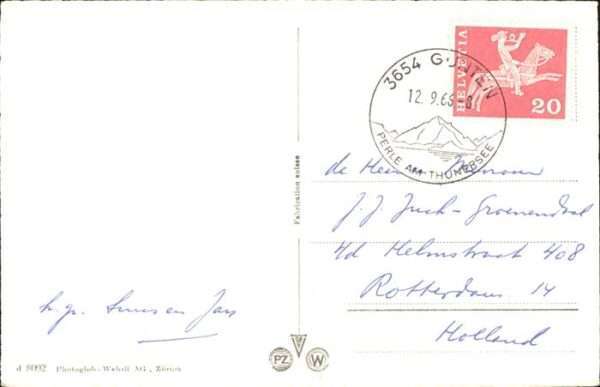 3654 GUNTEN
12.9.65-8
PERLE AM THUNERSEE
HELVETIA
20
Fabrication suisse
de Heer en Mevrouw
J. J. - Groenendaal
v/d Helmstraat 408
Rotterdam 14
Holland
h. gr. en
PZ
W
d 8092 Photoglob-Wehrli AG., Zürich